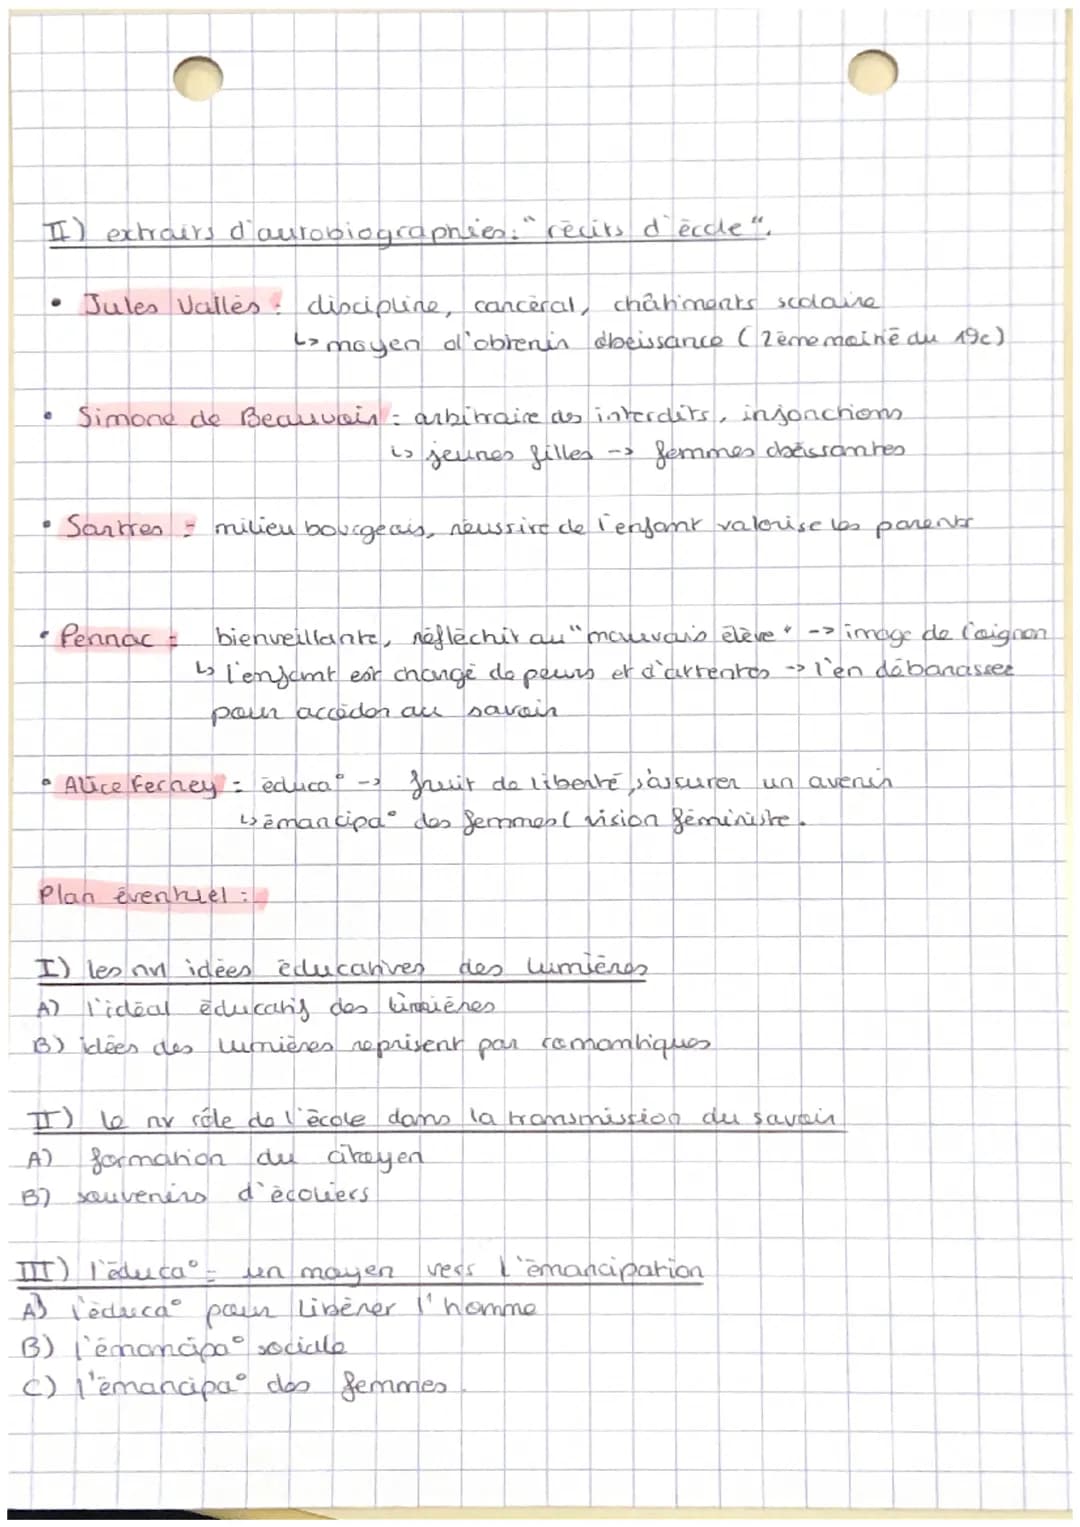 II) extraits d'autobiographies: "récits d'école".
• Jules Vallès : discipline, carcéral, châtiments scolaire
↳ moyen d'obtenir obeissance (2ème moitié du 19e)
• Simone de Beauvoir = arbitraire des interdits, injonctions
↳ jeunes filles -> femmes obéissantes
• Sartres = milieu bourgeois, réussite de l'enfant valorise les parents
• Pennac = bienveillante, réfléchir au "mauvais élève" -> image de l'oignon
↳ l'enfant est chargé de peurs et d'attentes -> l'en débarrasser
pour accéder au savoir
• Alice Ferney = éduca° -> fruit de liberté, s'assurer un avenir
↳ émancipa° des femmes ( vision féministe.
Plan éventuel :
I) les nv idées éducatives des lumières
A) l'idéal éducatif des lumières
B) idées des lumières reprisent par romantiques
II) le nv rôle de l'école dans la transmission du savoir
A) formation du citoyen
B) souvenirs d'écoliers
III) l'éduca° = un moyen vers l'émancipation
A) l'éduca° pour libérer l'homme
B) l'émancipa° sociale
C) l'émancipa° des femmes.